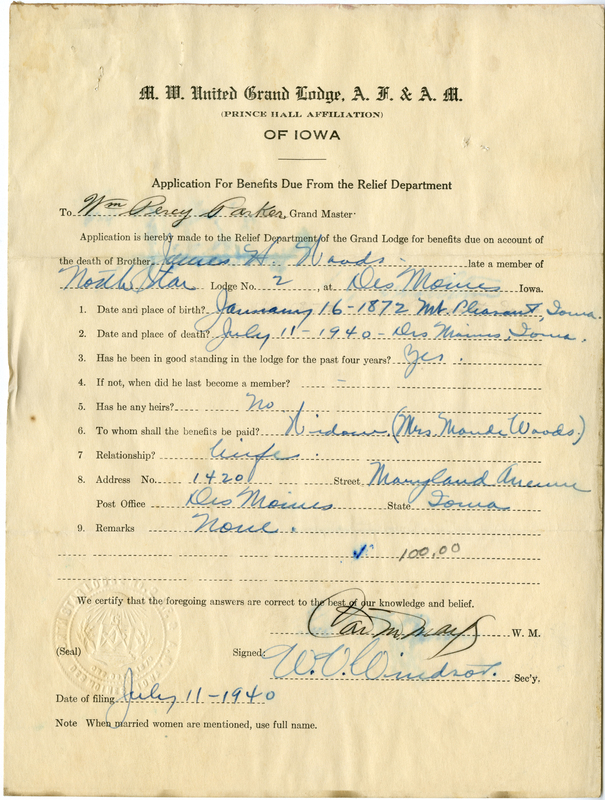 M. W. United Grand Lodge, A. F. & A. M.
(PRINCE HALL AFFILIATION)
OF IOWA
Application For Benefits Due From the Relief Department
To Wm Percy Parker, Grand Master
Application is hereby made to the Relief Department of the Grand Lodge for benefits due on account of
the death of Brother James H. Woods - late a member of
North Star Lodge No. 2, at Des Moines Iowa.
1. Date and place of birth? January 16-1872 Mt. Pleasant, Iowa.
2. Date and place of death? July 11-1940- Des Moines, Iowa.
3. Has he been in good standing in the lodge for the past four years? Yes.
4. If not, when did he last become a member? -
5. Has he any heirs? No
6. To whom shall the benefits be paid? Widow. (Mrs Maude Woods.)
7 Relationship? Wife.
8. Address No. 1420 Street Maryland Avenue
Post Office Des Moines State Iowa
9. Remarks None.
100.00
We certify that the foregoing answers are correct to the best of our knowledge and belief.
W. M.
(Seal) Signed: Sec'y,
Date of filing July 11-1940
Note When married women are mentioned, use full name.